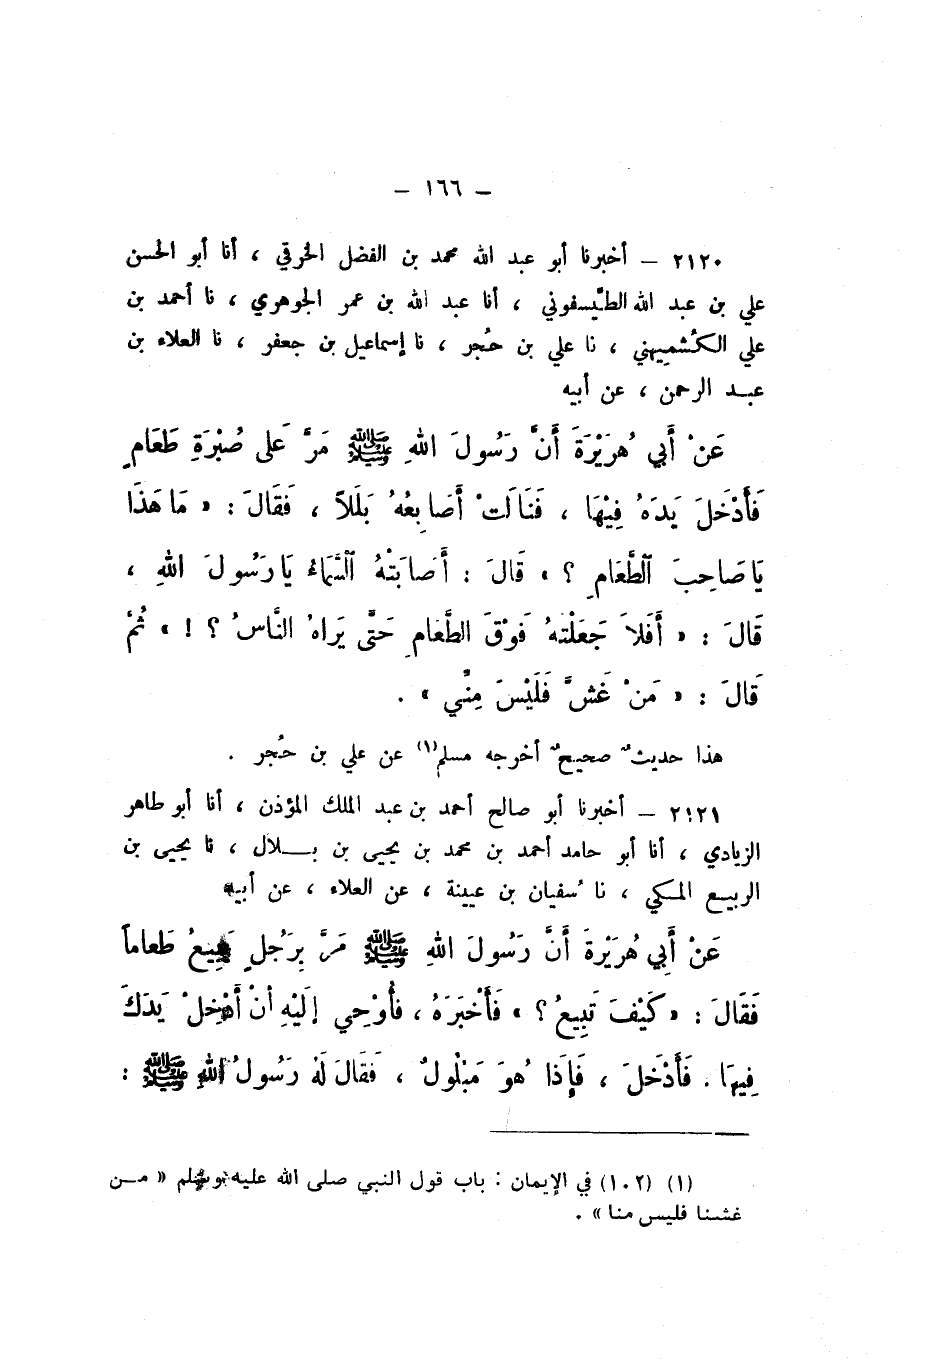 — ١٦٦ —
٢١٢٠ — أخبرنا أبو عبد الله محمد بن الفضل الخرقي ، أنا أبو الحسن
علي بن عبد الله الطَّيسفوني ، أنا عبد الله بن عمر الجوهري ، نا أحمد بن
علي الكُشميهني ، نا علي بن حُجر ، نا إسماعيل بن جعفر ، نا العلاء بن
عبد الرحمن ، عن أبيه
عَنْ أَبِي هُرَيْرَةَ أَنَّ رَسُولَ اللهِ ﷺ مَرَّ عَلَى صُبْرَةِ طَعَامٍ
فَأَدْخَلَ يَدَهُ فِيْهَا ، فَنَالَتْ أَصَابِعُهُ بَلَلاً ، فَقَالَ : « مَا هَذَا
يَا صَاحِبَ ٱلطَّعَامِ ؟ » قَالَ : أَصَابَتْهُ ٱلسَّمَاءُ يَا رَسُولَ اللهِ ،
قَالَ : « أَفَلاَ جَعَلْتَهُ فَوْقَ الطَّعَامِ حَتَّى يَرَاهُ النَّاسُ ؟ ! » ثُمَّ
قَالَ : « مَنْ غَشَّ فَلَيْسَ مِنِّي » .
هذا حديثٌ صحيحٌ أخرجه مسلم(١) عن علي بن حُجر .
٢١٢١ — أخبرنا أبو صالح أحمد بن عبد الملك المؤذن ، أنا أبو طاهر
الزيادي ، أنا أبو حامد أحمد بن محمد بن يحيى بن بـلال ، نا يحيى بن
الربيع المكي ، نا سُفيان بن عيينة ، عن العلاء ، عن أبيه
عَنْ أَبِي هُرَيْرَةَ أَنَّ رَسُولَ اللهِ ﷺ مَرَّ بِرَجُلٍ يَبِيْعُ طَعَاماً
فَقَالَ : « كَيْفَ تَبِيعُ ؟ » فَأَخْبَرَهُ ، فَأُوْحِي إِلَيْهِ أَنْ أَدْخِلْ يَدَكَ
فِيهَا . فَأَدْخَلَ ، فَإِذَا هُوَ مَبْلُولٌ ، فَقَالَ لَهُ رَسُولُ اللهِ ﷺ :
(١) (١٠٢) في الإيمان : باب قول النبي صلى الله عليه وسلم « مـن
غشنا فليس منا » .